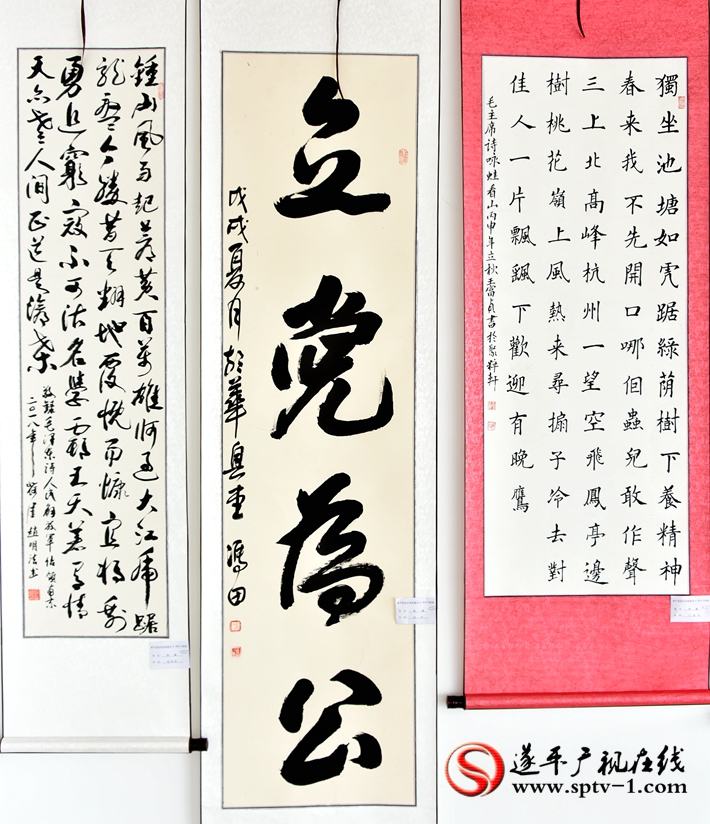 獨坐池塘如虎踞綠荫樹下養精神
春来我不先開口哪個蟲兒敢作聲
三上北高峰杭州一望空飛鳳亭邊
樹桃花嶺上風熱来尋搧子冷去對
佳人一片飄飄下歡迎有晚鷹
毛主席诗咏蛙看山丙申年立秋 貞書於聚粹軒
立党為公
戊戌夏月於華堂 馮田
鍾山風雨起蒼黄百萬雄师过大江虎踞
龙盘今胜昔天翻地覆慨而慷宜将剩
勇追窮寇不可沽名學霸王天若有情
天亦老人间正道是滄桑
敬録毛泽东诗人民解放軍佔領南京
二〇一八年 趙明
遂平广视在线
www.sptv-1.com